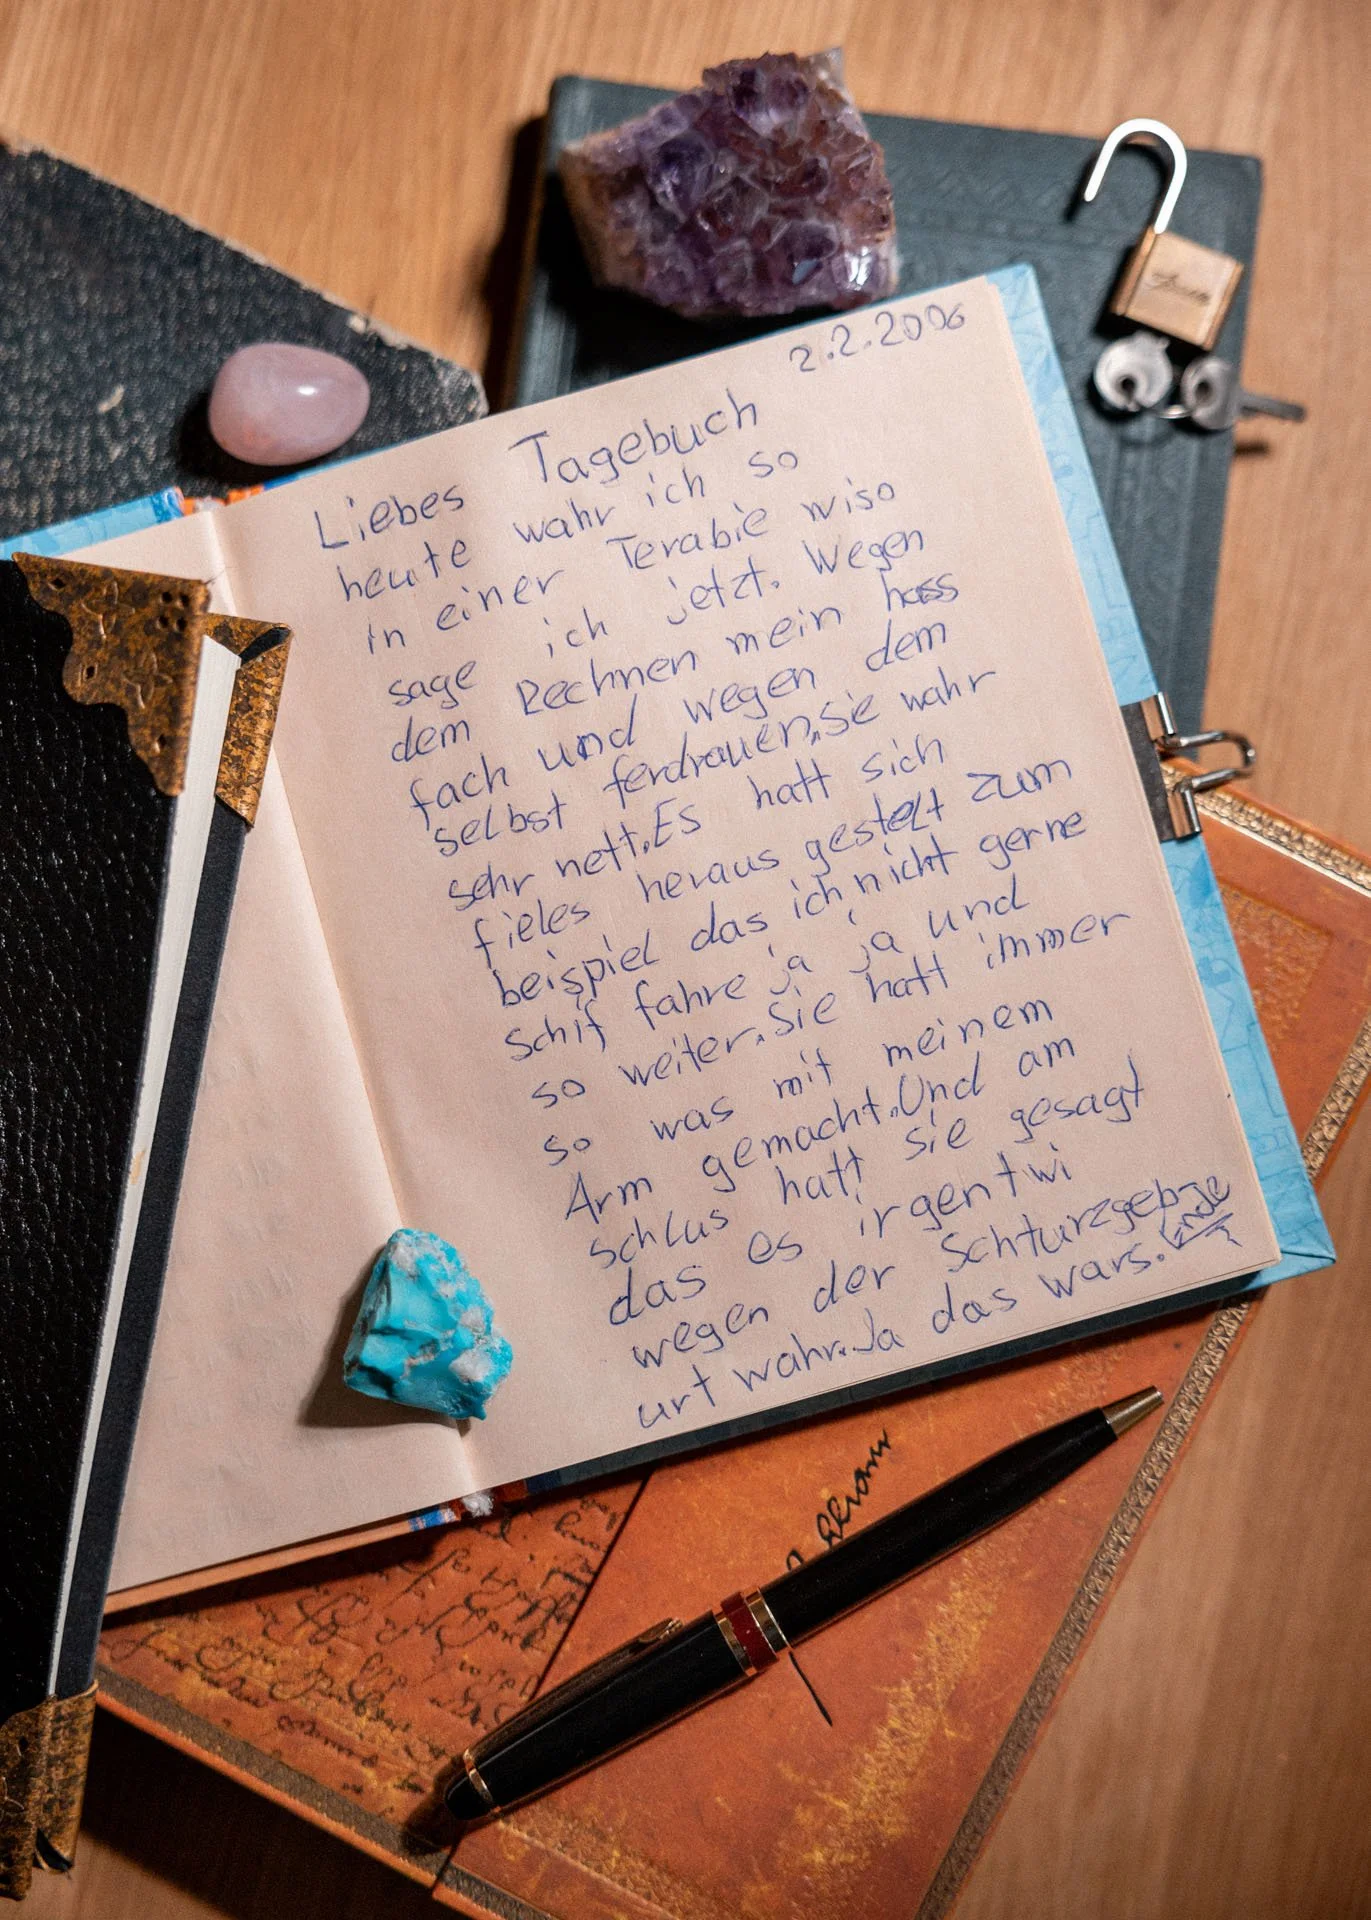 2.2.2006
Liebes Tagebuch
heute wahr ich so
in einer Terabie wiso
sage ich jetzt. Wegen
dem Rechnen mein hass
fach und wegen dem
selbst ferdrauen, sie wahr
sehr nett. Es hatt sich
fieles heraus gestellt zum
beispiel das ich nicht gerne
schif fahre ja ja und
so weiter. Sie hatt immer
so was mit meinem
Arm gemacht. Und am
schlus hatt sie gesagt
das es irgentwi
wegen der Schturzgeb-
urt wahr. Ja das wars. Ende